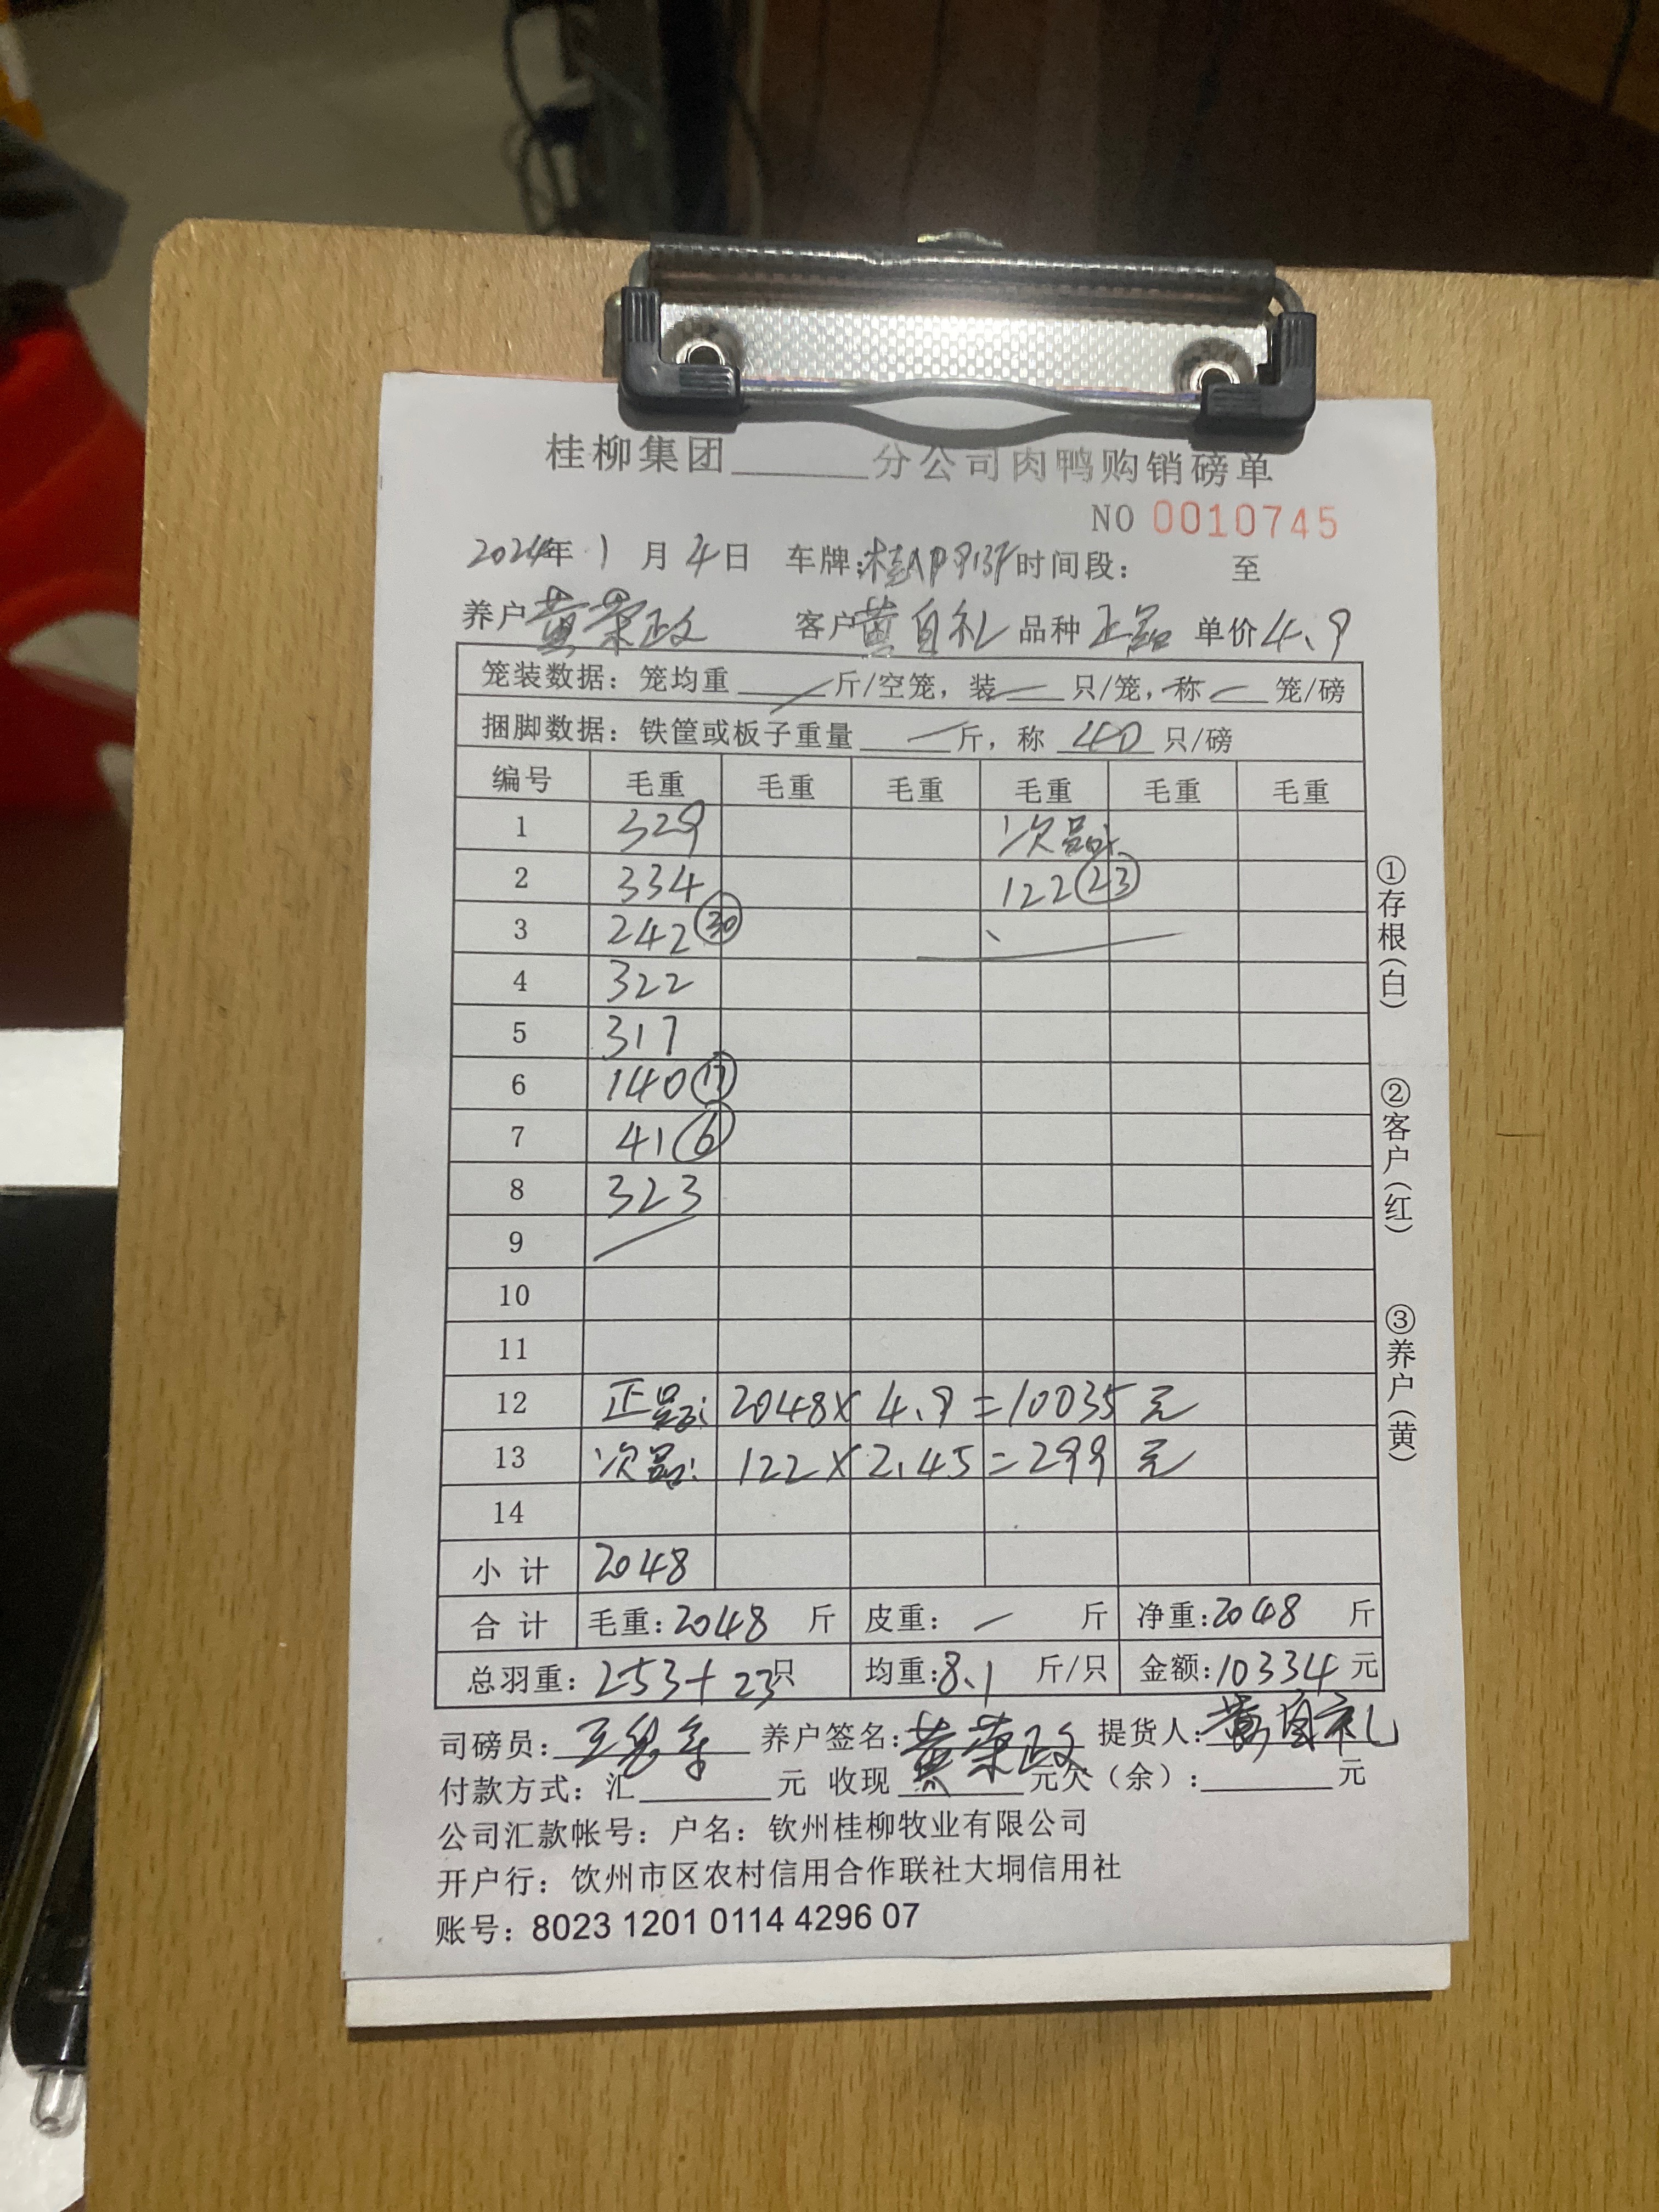 桂柳集团______分公司肉鸭购销磅单
NO 0010745
2024年 1 月 4 日 车牌: 时间段: 至
养户 黄荣政 客户 黄自礼 品种 正品 单价 4.9
笼装数据: 笼均重 — 斤/空笼, 装 — 只/笼, 称 — 笼/磅
捆脚数据: 铁筐或板子重量 — 斤, 称 40 只/磅
编号 毛重 毛重 毛重 毛重 毛重 毛重
1 329 次品:
2 334 122 23
3 242 30
4 322
5 317
6 140 17
7 41 6
8 323
9
10
11
12 正品: 2048×4.9=10035 元
13 次品: 122×2.45=299 元
14
小计 2048
合计 毛重: 2048 斤 皮重: — 斤 净重: 2048 斤
总羽重: 253+23只 均重: 8.1 斤/只 金额: 10334 元
司磅员: 养户签名: 黄荣政 提货人: 黄自礼
付款方式: 汇______元 收现______元欠(余): ______元
公司汇款帐号: 户名: 钦州桂柳牧业有限公司
开户行: 饮州市区农村信用合作联社大垌信用社
账号: 8023 1201 0114 4296 07
①存根(白)
②客户(红)
③养户(黄)